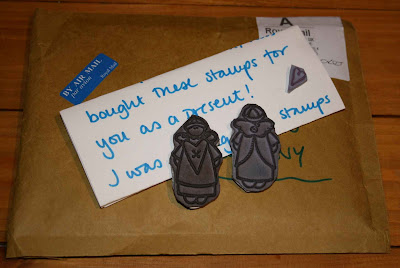 BY AIR MAIL
par avion
Royal Mail
A
Ro Mail
bought these stamps for
you as a present!
I was stamps
NY